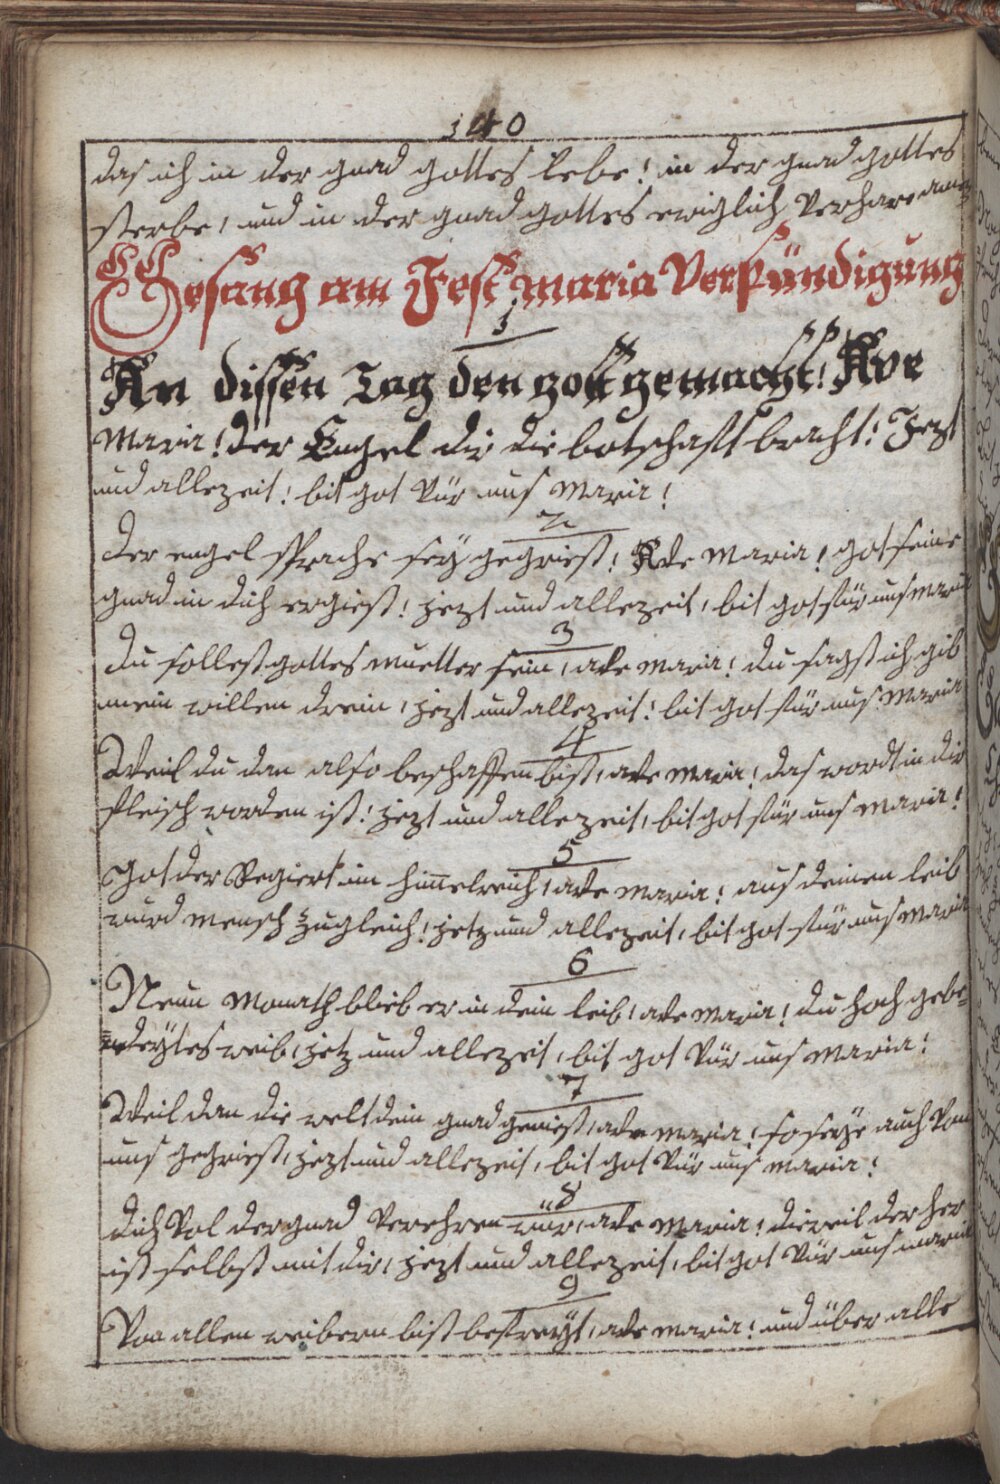 140
das ich in der gnad gottes lebe! in der gnad gottes
sterbe, und in der gnad gottes ewiglich verhare amen
Gesang am Fest maria Verkündigung
1
An dissen Tag den gott gemacht! Ave
Maria! der Engel dir die botschafft bracht! Jezt
und allezeit! bit got vür uns Maria!
2
der engel sprache sey gegriest! Ave Maria! got seine
gnad in dich ergiest! jezt und allezeit, bit got für uns Maria
3
du sollest gottes muetter sein, ave Maria! du sagst ich gib
mein willen drein, jezt und allezeit! bit got für uns Maria
4
Weil du dan also beschaffen bist, ave Maria! das wordt in dir
fleisch worden ist! jezt und allezeit, bit got für uns Maria!
5
Got der Regiert im himelreich, ave Maria! aus deinen leib
wurd mensch zugleich! jetz und allezeit, bit got für uns Maria
6
Neun Monath blieb er in dein leib, ave Maria! du hoch gebe=
=nedeytes weib, jetz und allezeit, bit got vür uns Maria!
7
Weil dan die welt dein gnad geniest, ave Maria! so seye auch von
uns gegriest, jezt und allezeit, bit got vür uns Maria!
8
dich vol der gnad verehren wür, ave Maria! dieweil der her
ist selbst mit dir, jezt und allezeit, bit got vür uns maria
9
Von allen weibern bist befreyt, ave maria! und über alle